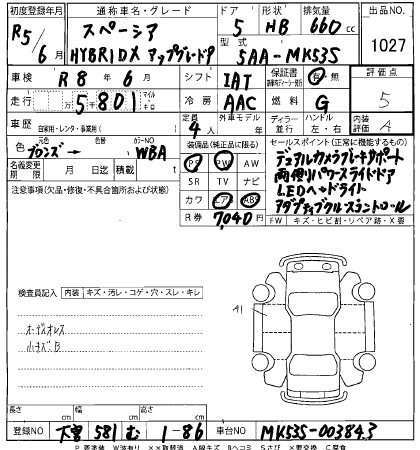 初度登録年月 通称車名・グレード ドア 形状 排気量 出品NO
R5/6月 スペーシア 5 HB 660cc 1027
HYBRIDX アップグレードP
型式 5AA-MK53S
車検 R8年6月 シフト IAT 保証書 有 無 評価点
走行 5,801 マイル キロ 冷房 AAC 燃料 G 5
車歴 自家用・レンタ・事業用( ) 定員 4人 外車モデル 年 ディーラー 並行 ハンドル 左・右 内装評価 A
色 元色 ブロンズ→ 色替 カラーNO WBA
装備品(純正品に限る) セールスポイント(正常に機能するもの)
名義変更期限 月 日迄 積載 t
PS PW AW
デュアルカメラブレーキサポート
注意事項(欠品・修復・不具合箇所および状態)
SR TV ナビ
両側パワースライドドア
LEDヘッドライト
カワ エア AB
アダプティブクルーズコントロール
R券 7,040円
FW キズ・ヒビ割・リペア跡・X要
検査員記入 内装 キズ・汚レ・コゲ・穴・スレ・キレ
A1
オーディオレス
小キズB
長さ cm 幅 cm 高さ cm
登録NO 581 む 1-86 車台NO MK53S-003843
P 要塗装 W波有り ××取替済 A線キズ Bヘコミ Sさび ×要交換 C腐食